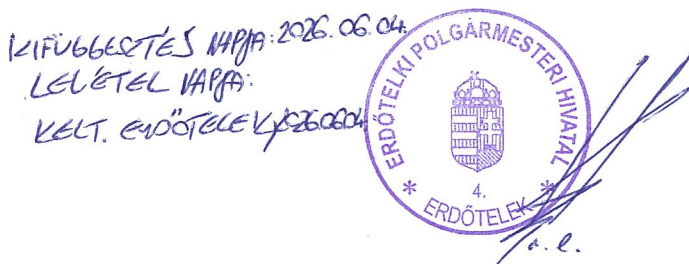 KIFÜGGESZTÉS NAPJA: 2026.06.04.
LEVÉTEL NAPJA:
KELT. ERDŐTELEK, 2026.06.04
ERDŐTELKI POLGÁRMESTERI HIVATAL
4.
* ERDŐTELEK *